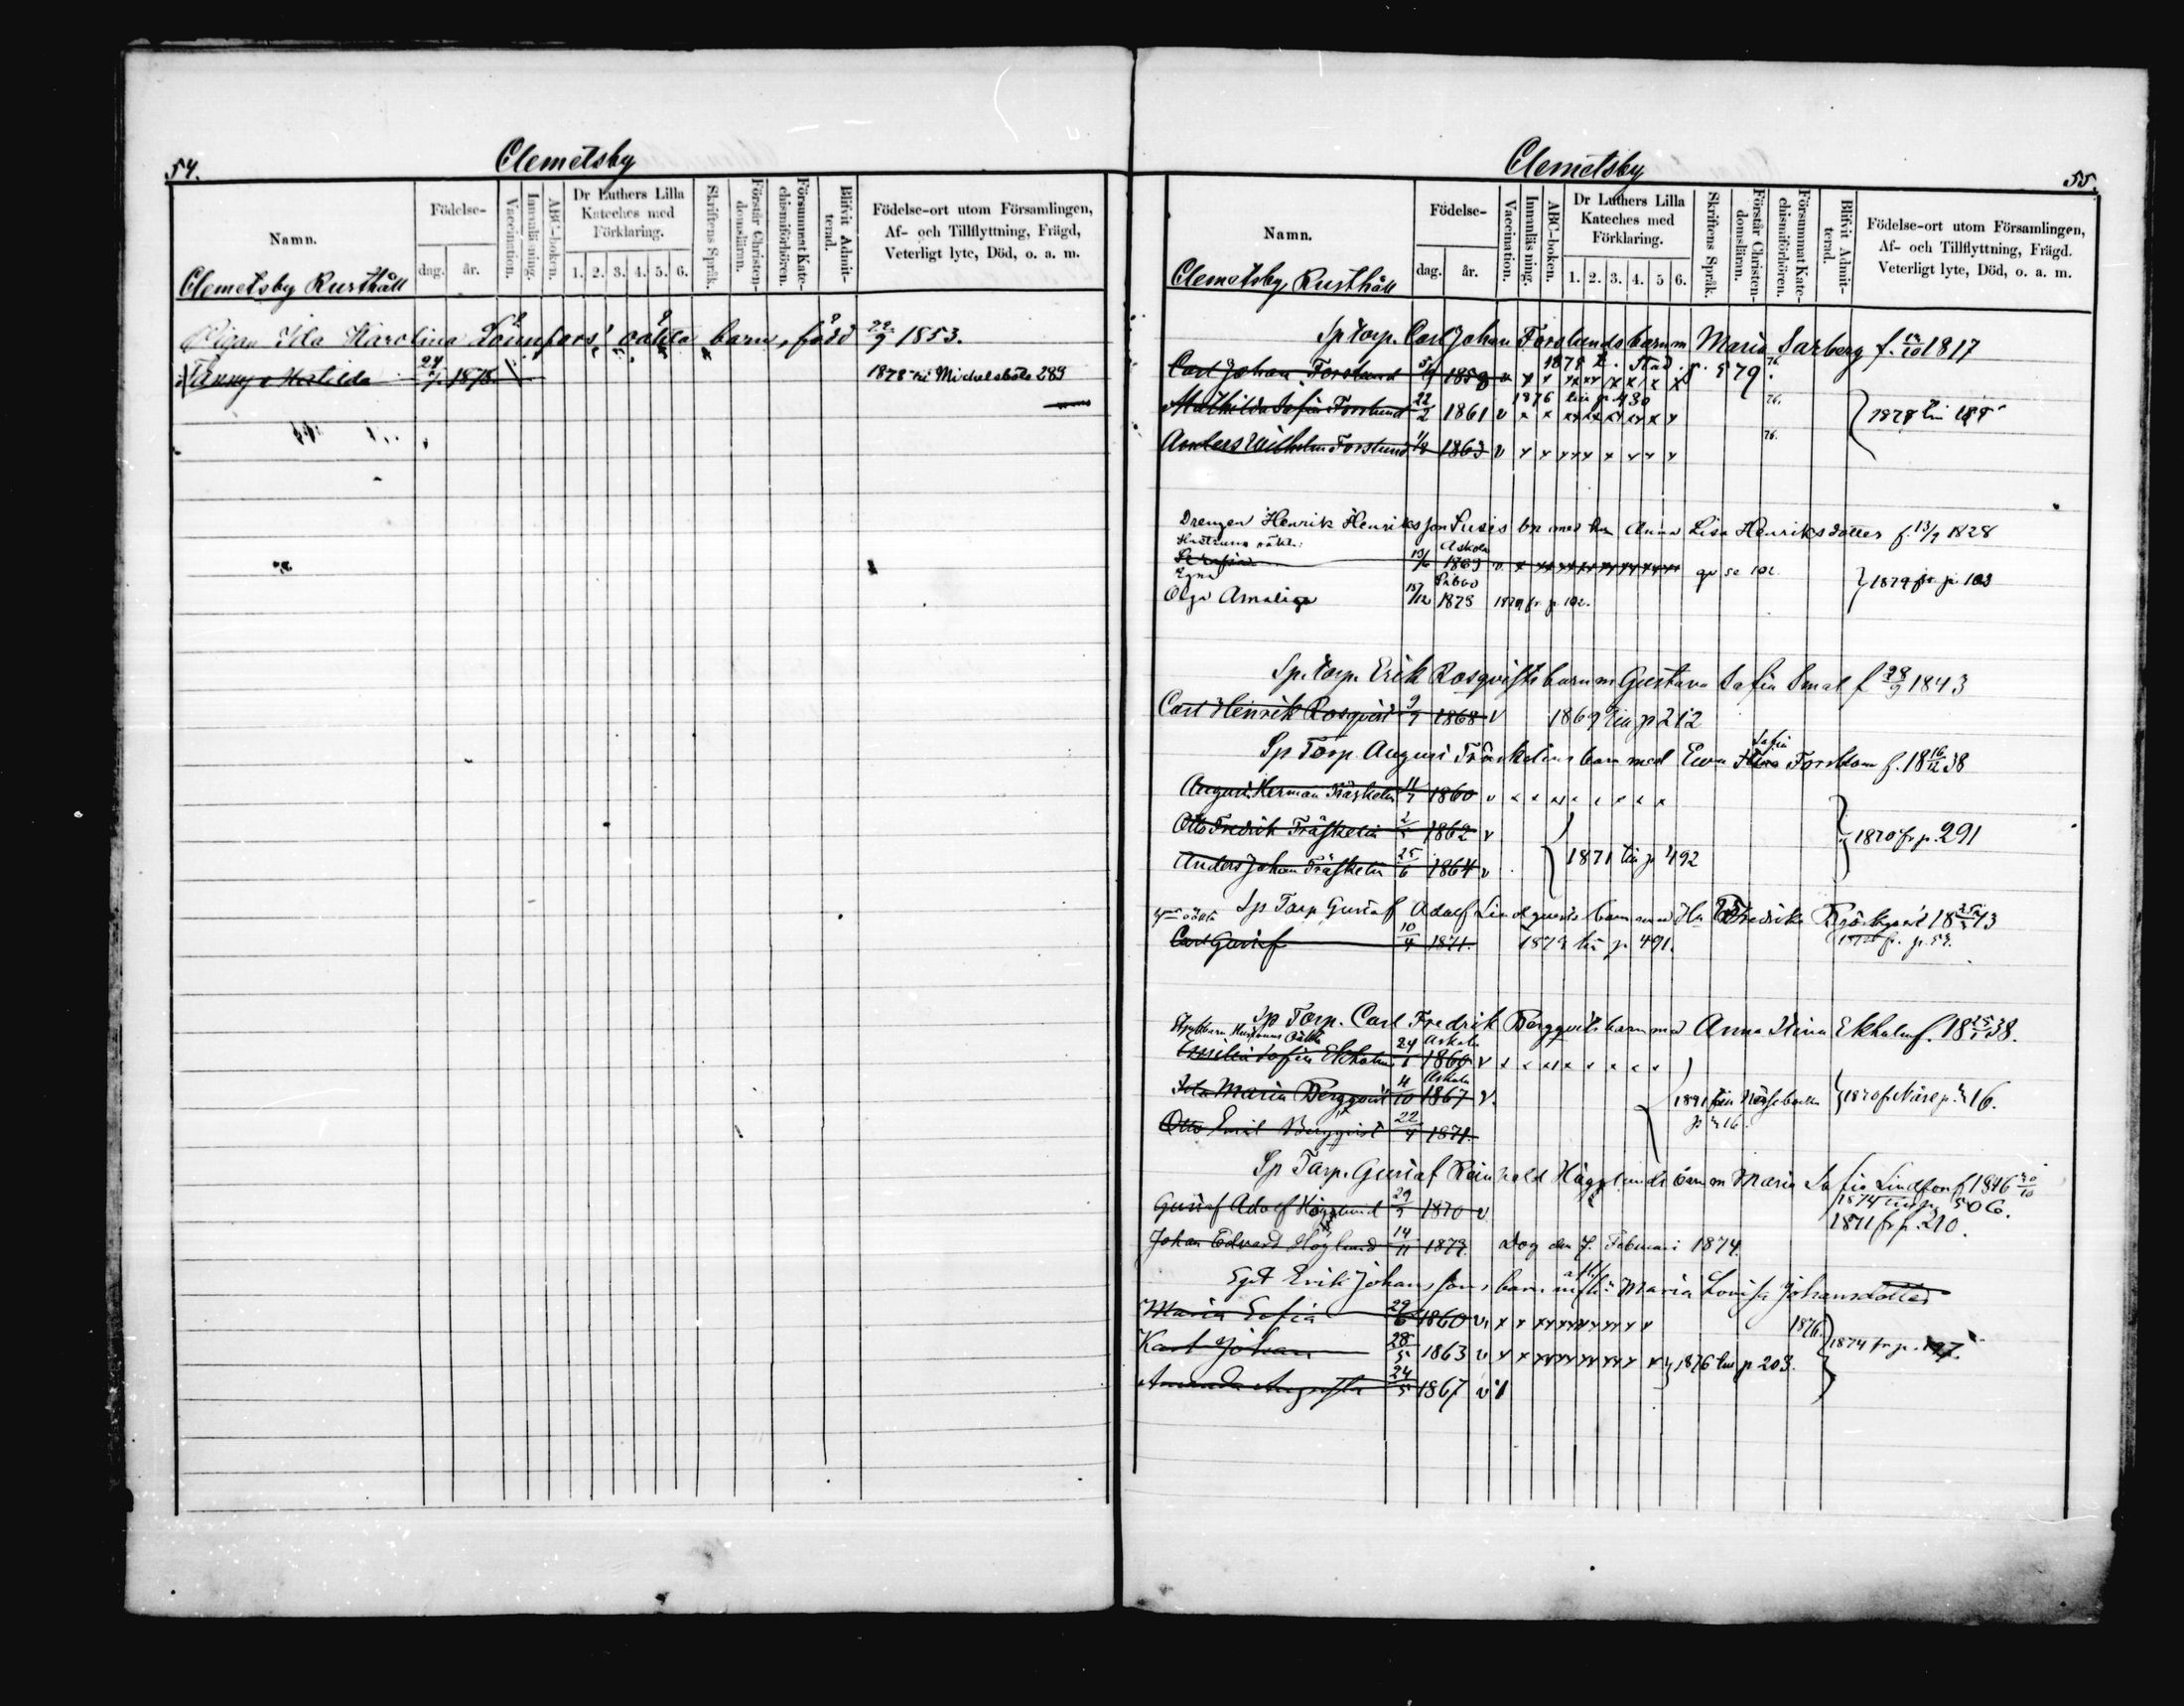 54.
Clemetsby
Namn.
Födelse-
dag.
år.
Vaccination.
Innanläsning.
ABC-boken.
Dr Luthers Lilla
Kateches med
Förklaring.
1. 2. 3. 4. 5. 6.
Skriftens Språk.
Förstår Christen-
domsläran.
Försummat Kate-
chismiförhören.
Blifvit Admit-
terad.
Födelse-ort utom Församlingen,
Af- och Tillflyttning, Frägd,
Veterligt lyte, Död, o. a. m.
Clemetsby Rusthåll
Pigan Ida Karolina oäkta barn, född 22/9 1853.
Fanny Matilda 24/7 1878. 1878 til Michelsböle 289
Clemetsby
55.
Namn.
Födelse-
dag.
år.
Vaccination.
Innanläsning.
ABC-boken.
Dr Luthers Lilla
Kateches med
Förklaring.
1. 2. 3. 4. 5 6.
Skriftens Språk.
Förstår Christen-
domsläran.
Försummat Kate-
chismiförhören.
Blifvit Admit-
terad.
Födelse-ort utom Församlingen,
Af- och Tillflyttning, Frägd.
Veterligt lyte, Död, o. a. m.
Clemetsby Rusthåll
Sp Torp. Carl Johan Forslunds barn m Maria Sarberg f. 1817
Carl Johan Forslund 5/9 1858 v 1878 t. Stad. p. 579 76.
Mathilda Sofia Forslund 22/2 1861 v 1876 till p 430 76.
Anders Wilhelm Forslund 1863 v 76.
Drengen Henrik Henriksson Susis bn med hu Anna Lisa Henriksdotter f. 13/9 1828
Hustruns oäkta: Askola
Serafia 1869 v qv se 102. 1879 fr. p. 103
Egna Sibbo
Olga Amalia 1878 1879 fr p 102.
Sp. Torp. Erik Rosqvists barn m Gustava Sofia Smal f 28/9 1843
Carl Henrik Rosqvist 1868 v 1869 till p 212
Sp Torp August Träskelins barn med Eva Sofia Forsblom f. 18 16/12 38
August Herman Träskelin 1860 v
Otto Fredrik Träskelin 1862 v 1870 fr p. 291
Anders Johan Träskelin 25/6 1864 v 1871 till p 492
Sp Torp Gustaf Adolf Lindqvists barn med Ida Fredrika
Carl Gustaf 10/4 1871. till p 491.
Sp Torp. Carl Fredrik Bergqvists barn med Anna Stina Ekholm f. 18 38.
Hustruns Oäkta Askola
Emilia Sofia Ekholm 24 1860 v
Askola
Ida Maria Bergqvist 4/10 1867 v. 16.
Otto Emil Bergqvist 22/4 1871.
Sp Torp. Gustaf Reinhold Hägglunds barn m Maria Sofia Lindfors f 1846
1874 till p 506.
Gustaf Adolf Hägglund 29 1870 v 1871 fr p. 210.
Johan Edvard Höglund 14/11 1873. dog den 7. Februari 1874.
Erik Johanssons barn m Maria Lovisa Johansdotter
Maria Sofia 29/6 1860 v 1876
Karl Johan 28/5 1863 v 1876 till p 203. 1874 fr p.
Amanda Augusta 24/5 1867 v